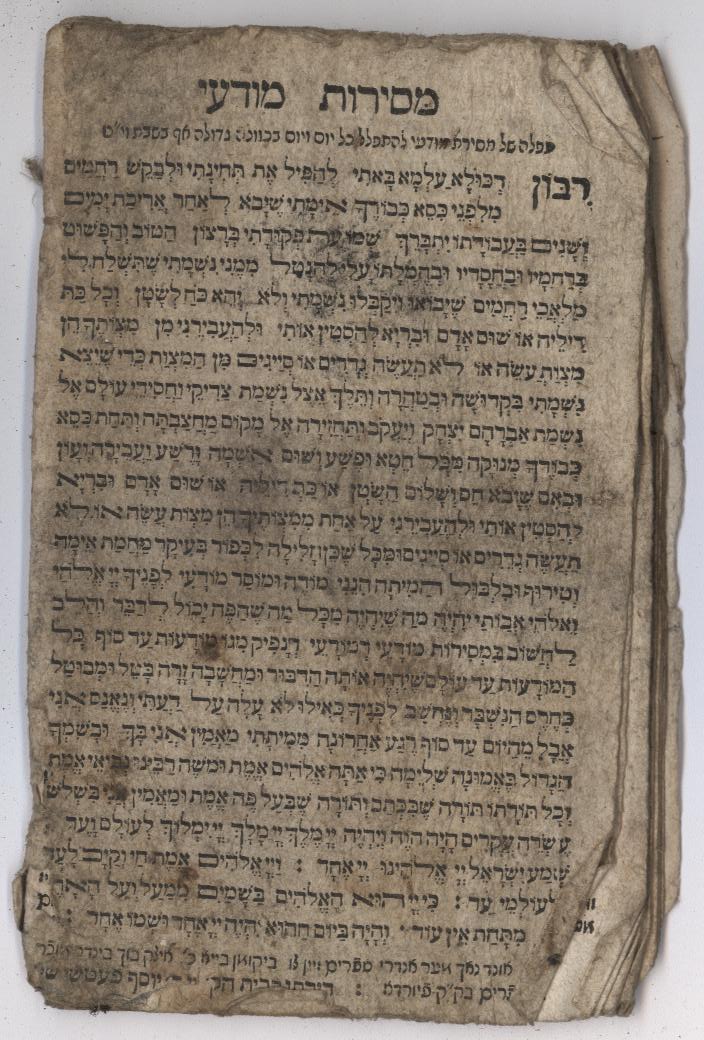 מסירות מודעי
תפלה של מסירת מודעי להתפלל כל יום ויום בכוונה גדולה אף בשבת וי״ט
רבון דְכוּלָא עַלְמָא בָּאתִי לְהַפִּיל אֶת תְּחִינָתִי וּלְבַקֵשׁ רַחֲמִים
מִלִפְנֵי כִּסֵא כְּבוֹדֶךָ אֵימָתַי שֶׁיָבֹא לְאַחַר אֲרִיכַת יָמִים
וְשָׁנִים בַּעֲבוֹדָתוֹ יִתְבָּרַךְ פִּקְדוֹתַי בְּרָצוֹן הַטוֹב וְהַפָּשׁוּט
בְּרַחֲמָיו וּבַחֲסָדָיו וּבְחֶמְלָתוֹ עָלַי לְהִנָטֵל מִמֶנִי נִשְׁמָתִי שֶׁתִּשְׁלַח לִי
מַלְאֲכֵי רַחֲמִים שֶׁיָבוֹאוּ וִיקַבְּלוּ נִשְׁמָתִי וְלֹא יְהֵא כֹּחַ לְשָׂטָן וְכָל כַּת
דִילֵיהּ אוֹ שׁוּם אָדָם וּבִרְיָא לְהַסְטִין אוֹתִי וּלְהַעֲבִירֵנִי מִן מִצְוֹתֶךָ הֵן
מִצְוֹת עֲשֵׂה אוֹ לֹא תַעֲשֶׂה גְדָרִים אוֹ סְיָיגִים מִן הַמִצְוֹת כְּדֵי שֶׁיֵצֵא
נִשְׁמָתִי בִּקְדוּשָׁה וּבְטָהֳרָה וְתֵלֵךְ אֵצֶל נִשְׁמַת צַדִיקֵי וַחֲסִידֵי עוֹלָם אֶל
נִשְׁמַת אַבְרָהָם יִצְחָק וְיַעֲקֹב וְתַחֲזִירָהּ אֶל מְקוֹם מַחְצַבְתָּהּ וְתַחַת כִּסֵא
כְּבוֹדֶךָ מְנוּקָה מִכָּל חֵטְא וּפֶשַׁע וְשׁוּם אַשְׁמָה וְרֶשַׁע וַעֲבֵירָה וְעָוֹן
וּבְאִם שֶׁיָבֹא חַס וְשָׁלוֹם הַשָׂטָן אוֹ כַּת דִילֵיהּ אוֹ שׁוּם אָדָם וּבִרְיָא
לְהַסְטִין אוֹתִי וּלְהַעֲבִירֵנִי עַל אַחַת מִמִצְוֹתֶיךָ הֵן מִצְוֹת עֲשֵׂה אוֹ לֹא
תַעֲשֶׂה גְדָרִים אוֹ סְיָיגִים וּמִכָּל שֶׁכֵּן וְחָלִילָה לִכְפּוֹר בְּעִיקָר מֵחֲמַת אֵימָה
וְטֵירוּף וּבִלְבּוּל הַמִיתָה הִנְנִי מוֹדֶה וּמוֹסֵר מוֹדָעֵי לְפָנֶיךָ יְיָ אֱלֹהַי
וֵאלֹהֵי אֲבוֹתַי יִהְיֶה מַה שֶׁיִהְיֶה מִכָּל מַה שֶׁהַפֶּה יָכוֹל לְדַבֵּר וְהַלֵב
לַחְשׁוֹב בִּמְסִירוֹת מוֹדָעֵי דְמוֹדָעֵי דְנָפִיק מִגוֹ מוֹדָעוֹת עַד סוֹף כָּל
הַמוֹדָעוֹת עַד עוֹלָם שֶׁיִהְיֶה אוֹתָהּ הַדִבּוּר וּמַחֲשָׁבָה זָרָה בָּטֵל וּמְבוּטָל
כְּחֶרֶס הַנִשְׁבָּר וְנֶחְשָׁב לְפָנֶיךָ כְּאִילוּ לֹא עָלָה עַל דַעְתִּי וְנֶאֱנַס אֲנִי
אֲבָל מֵהַיוֹם עַד סוֹף רֶגַע אַחֲרוֹנָה מִמִיתָתִי מַאֲמִין אֲנִי בְּךָ וּבְשִׁמְךָ
הַגָדוֹל בֶּאֱמוּנָה שְׁלֵימָה כִּי אַתָּה אֱלֹהִים אֱמֶת וּמֹשֶׁה רַבֵּינוּ נְבִיאֵי אֱמֶת
וְכָל תּוֹרָתוֹ תּוֹרָה שֶׁבִּכְתָב וְתוֹרָה שֶׁבְּעַל פֶּה אֱמֶת וּמַאֲמִין אֲנִי בִּשְׁלֹשׁ
עֶשְׂרֵה עִקָרִים הָיָה הֹוֶה וְיִהְיֶה יְיָ מֶלֶךְ יְיָ מָלָךְ יְיָ יִמְלוֹךְ לְעוֹלָם וָעֶד
שְׁמַע יִשְׂרָאֵל יְיָ אֱלֹהֵינוּ יְיָ אֶחָד : וַיְיָ אֱלֹהִים אֱמֶת חַי וְקַיָם לָעַד
לְעוֹלְמֵי עַד : כִּי יְיָ הוּא הָאֱלֹהִים בַּשָׁמַיִם מִמַעַל וְעַל הָאָרֶץ
מִתַּחַת אֵין עוֹד : וְהָיָה בַּיוֹם הַהוּא יִהְיֶה יְיָ אֶחָד וּשְׁמוֹ אֶחָד :
אונד נאך מער אנדרי ספרים זיין צו ביקומן בייא בוך בינדר
בק״ק פיורדא : יוסף